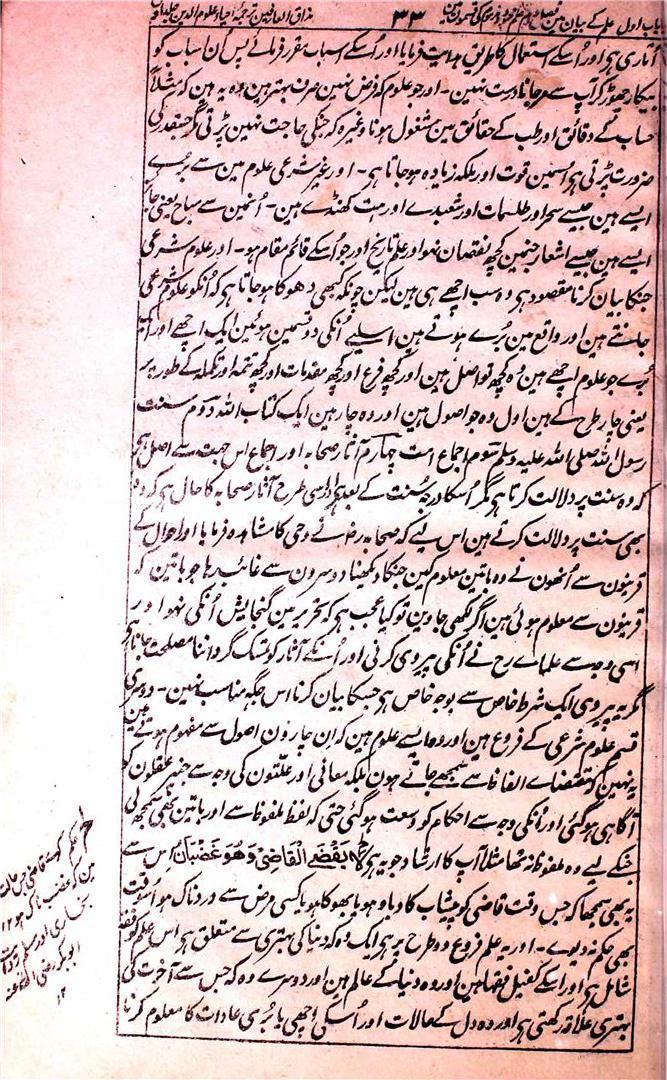 باب اول علم کے بیان مین
۳۳
مذاق العارفین ترجمہ احیاء علوم الدین جلد اول
اُتاری ہی اور اُسکے استعمال کا طریق ہدایت فرمایا اور اُسکے اسباب مقرر فرمائے پس اُن اسباب کو
بیکار چھوڑکر آپ سے مرجانا درست نہین ۔ اور جو علوم کہ فرض نہین صرف بہتر ہین وہ یہ ہین کہ مثلاً
حساب کے دقائق اور طب کے حقائق مین مشغول ہونا وغیرہ کہ جنکی حاجت نہین پڑتی مگر جسقدر کی
ضرورت پڑتی ہی اُسمین قوت اور ملکہ زیادہ ہوجاتا ہے ۔ اور غیر شرعی علوم مین سے بُرے
ایسے ہین جیسے سحر اور طلسمات اور شعبدے اور مت کھنڈے ہین ۔ اُنمین سے مباح یعنی جائز
ایسے ہین جیسے اشعار جنمین کچھ نقصان نہو اور علم تاریخ اور جو اُسکے قائم مقام ہو ۔ اور علوم شرعی
جنکا بیان کرنا مقصود ہی وہ سب اچھے ہی ہین لیکن چونکہ کبھی دھوکا ہوجاتا ہی کہ اُنکو علوم شرعی
جانتے ہین اور واقع مین بُرے ہوتے ہین اسلیے اُنکی دو قسمین ہوئین ایک اچھے اور ایک
بُرے جو علوم اچھے ہین وہ کچھ تو اصل ہین اور کچھ فرع اور کچھ مقدمات اور کچھ تتمہ اور تکملہ کے طور پر
یعنی چار طرح کے ہین اول وہ جو اصول ہین اور وہ چار ہین ایک کتاب اللہ دوم سنت
رسول اللہ صلی اللہ علیہ وسلم سوم اجماع امت چہارم آثار صحابہ اور اجماع اس جہت سے اصل ہی
کہ وہ سنت پر دلالت کرتا ہی مگر اُسکا درجہ سُنت کے بعد ہی اِسی طرح آثار صحابہ کا حال ہی کہ وہ
بھی سنت پر دلالت کرتے ہین اس لیے کہ صحابہ رض نے وحی کا مشاہدہ فرمایا اور احوال کے
قرینون سے اُنھون نے وہ باتین معلوم کین جنکا دیکھنا دوسرون سے غائب رہا جو باتین کہ
قرینون سے معلوم ہوئی ہین اگر لکھی جاوین تو کیا عجب ہی کہ تحریر مین گنجایش اُنکی نہو اور
اسی وجہ سے علماے رح نے اُنکی پیروی کرنی اور اُنکے آثار کو تمسک گرداننا مصلحت جانا ہی
مگر یہ پیروی ایک شرط خاص سے بوجہ خاص ہی جسکا بیان کرنا اس جگہ مناسب نہین ۔ دوسری
قسم علوم شرعی کے فروع ہین اور وہ ایسے علوم ہین کہ ان چارون اصول سے مفہوم ہوتے ہین
یہ نہین کہ مقتضاے الفاظ سے سمجھے جاتے ہون بلکہ معانی اور علتون کی وجہ سے جنپر عقلون کو
آگاہی ہوگئی اور اُنکی وجہ سے احکام کو وسعت ہوگئی حتی کہ لفظ ملفوظ سے اور باتین بھی سمجھ لی
جنکے لیے وہ ملفوظ نہ تھا مثلاً آپ کا ارشاد جو یہ ہی لَا یَقْضِی الْقَاضِیْ وَهُوَ غَضْبَانُ اِس سے
یہ بھی سمجھا کہ جس وقت قاضی کو پیشاب کا دباو ہو یا بھوکا ہو یا کسی مرض سے دردناک ہو اُسوقت
بھی حکم نہ دیوے ۔ اور یہ علم فروع دو طرح پر ہی ایک وہ کہ دنیا کی بہتری سے متعلق ہی اس علم کو فقہ
شامل ہی اور اسکے کفیل فقہا ہین اور وہ دنیا کے عالم ہین اور دوسرے وہ کہ جس سے آخرت کی
بہتری علاقہ رکھتی ہی اور وہ دل کے حالات اور اُسکی اچھی یا بُری عادات کا معلوم کرنا
حکم نہ کرے قاضی جس حالت
مین کہ غضبناک ہو ۱۲
بخاری اور مسلم
ابوبکرہ رضی اللہ عنہ
۱۲